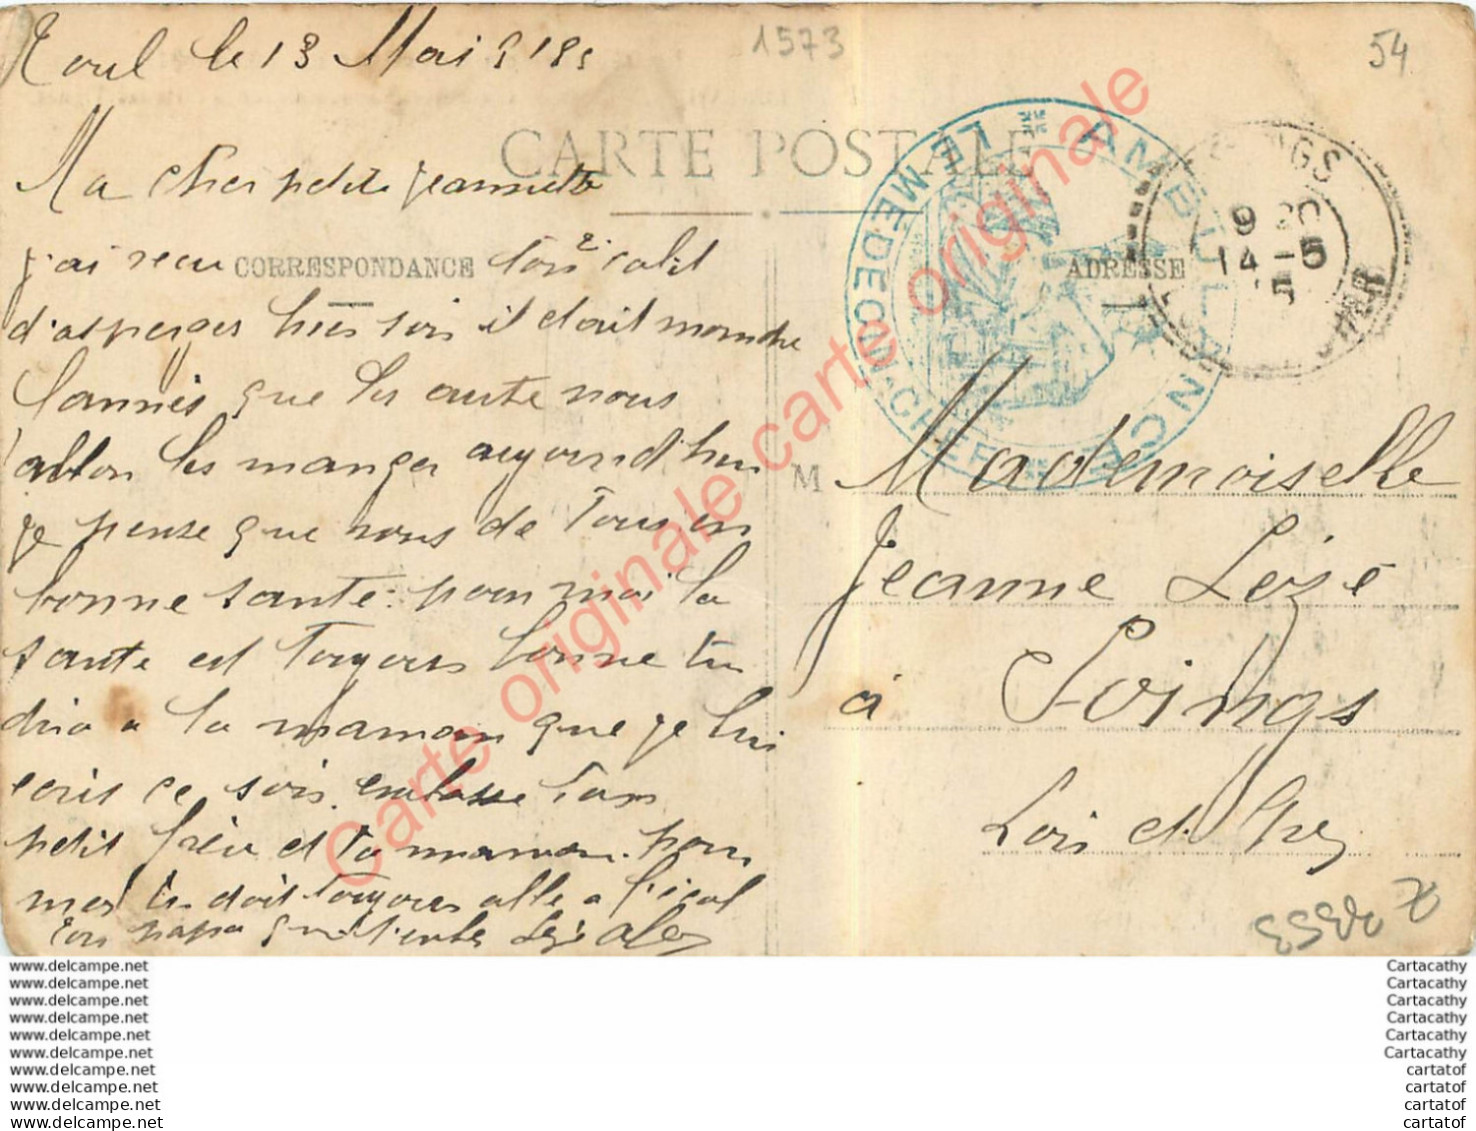 Toul le 13 Mai 1915
1573
54
CARTE POSTALE
Ma cher petite jeannette
j'ai recu CORRESPONDANCE ton 2e colit
d'asperger hier soir il etait moindre
que les autre nous
allon les manger aujourd'hui
je pense que vous de tous en
bonne sante. pour moi la
sante est toujours bonne tu
dira a la maman que je lui
ecrit ce soir. embrasse ton
petit frère et ta maman. pour
tu doit toujours alle a l'ecol
ton papa qui t'
ADRESSE
AMBULANCE
LE MEDECIN CHEF
9 20
14 -5
M Mademoiselle
Jeanne Lezé
à Soings
Loir et Cher
Carte originale carte originale carte originale
www.delcampe.net
www.delcampe.net
www.delcampe.net
www.delcampe.net
www.delcampe.net
www.delcampe.net
www.delcampe.net
www.delcampe.net
www.delcampe.net
www.delcampe.net
Cartacathy
Cartacathy
Cartacathy
Cartacathy
Cartacathy
Cartacathy
cartatof
cartatof
cartatof
cartatof